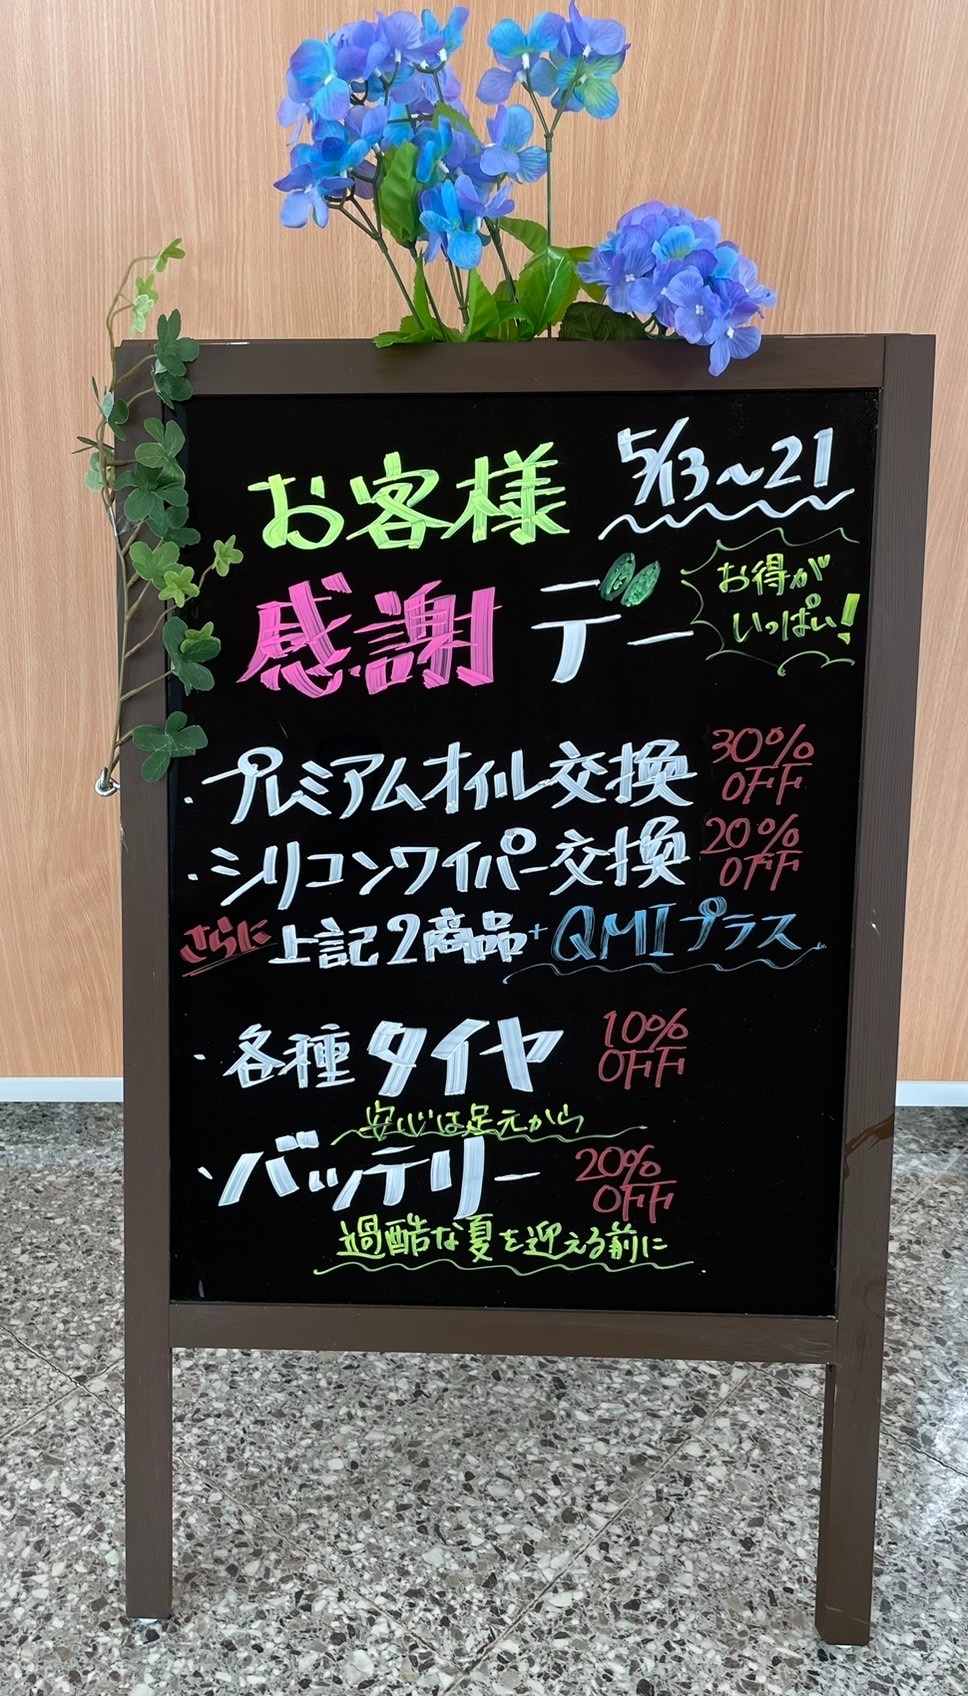 お客様 5/13～21
感謝デー
お得が
いっぱい!
・プレミアムオイル交換 30%OFF
・シリコンワイパー交換 20%OFF
さらに 上記2商品+QMIプラス
・各種タイヤ 10%OFF
安心は足元から
・バッテリー 20%OFF
過酷な夏を迎える前に